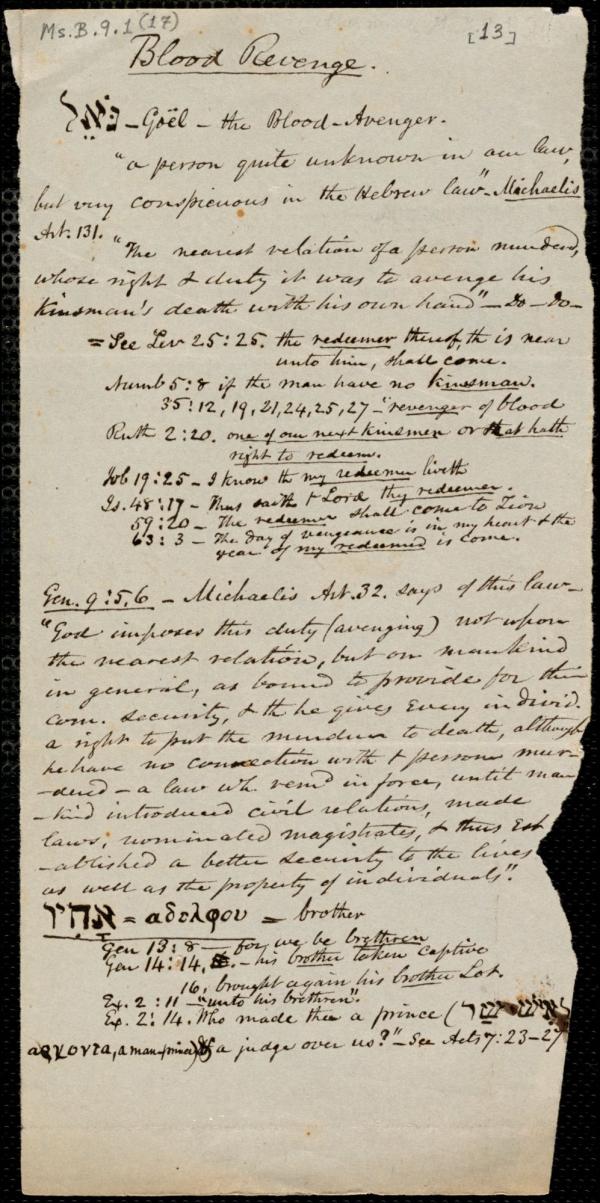 Ms.B.9.1(17)
[13]
Blood Revenge.
גֹּאֵל – Goël – the Blood-Avenger.
"a person quite unknown in our law,
but very conspicuous in the Hebrew law" – Michaelis
Art. 131.
"The nearest relation of a person murdered,
whose right & duty it was to avenge his
kinsman's death with his own hand" – Do – Do –
= See Lev 25:25. the redeemer thereof, th is near
unto him, shall come.
Numb 5:8 if the man have no kinsman.
35:12, 19, 21, 24, 25, 27 – "revenger of blood
Ruth 2:20. one of our next kinsmen or that hath
right to redeem.
Job 19:25 – I know th my redeemer liveth
Is. 48:17 – Thus saith t Lord thy redeemer.
59:20 – The redeemer shall come to Zion
63:3 – The day of vengeance is in my heart & the
year of my redeemed is come.
Gen. 9:5,6 – Michaelis Art. 32. says of this law –
"God imposes this duty (avenging) not upon
the nearest relation, but on mankind
in general, as bound to provide for their
com. security, & th he gives every individ.
a right to put the murderer to death, although
he have no connection with t person mur-
-dered – a law wh. remd in force, until man
-kind introduced civil relations, made
laws, nominated magistrates, & thus est
-ablished a better security to the lives
as well as the property of individuals".
אָחִיו = αδελφου = brother
Gen 13:8 – for we be brethren
Gen 14:14, – his brother taken captive
16, brought again his brother Lot.
Ex. 2:11 – "unto his brethren".
Ex. 2:14. Who made thee a prince (לְאִישׁ שַׂר
αρχοντα, a man prince) & a judge over us?" – See Acts 7:23–27